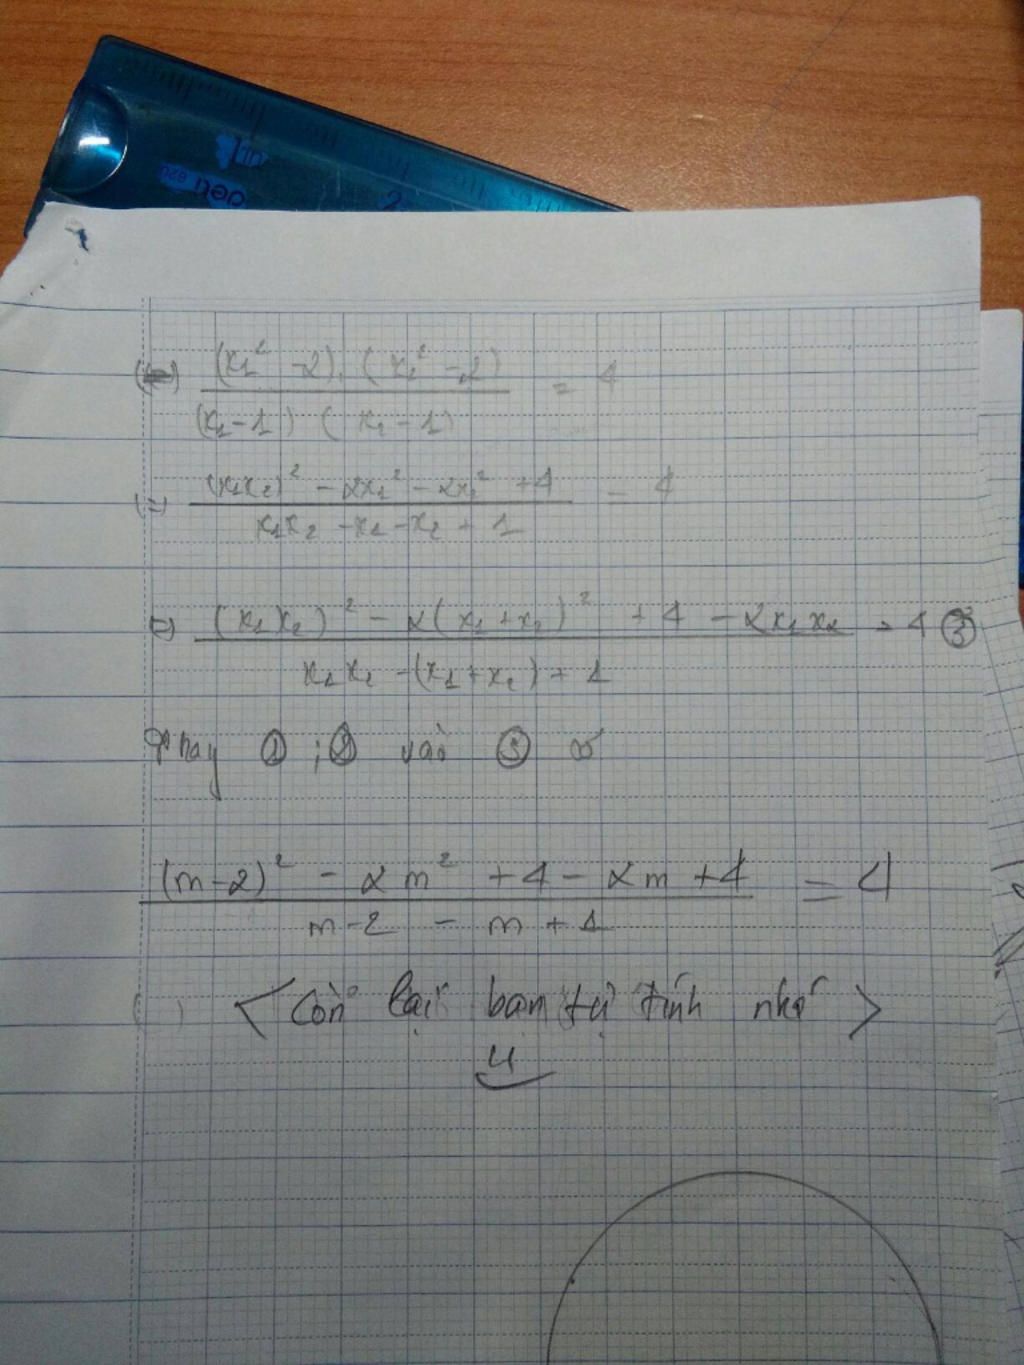 deli 620
2
(=) (x₁² - 2).(x₂² - 2) / (x₁ - 1)(x₂ - 1) = 4
(=) (x₁x₂)² - 2x₁² - 2x₂² + 4 / x₁x₂ - x₁ - x₂ + 1 = 4
(=) (x₁x₂)² - 2(x₁+x₂)² + 4 - 2x₁x₂ / x₁x₂ - (x₁+x₂) + 1 = 4 ③
Thay ① ; ② vào ③
(m-2)² - 2m² + 4 - 2m + 4 / m-2 - m + 1 = 4
< Còn lại bạn tự tính nhé >